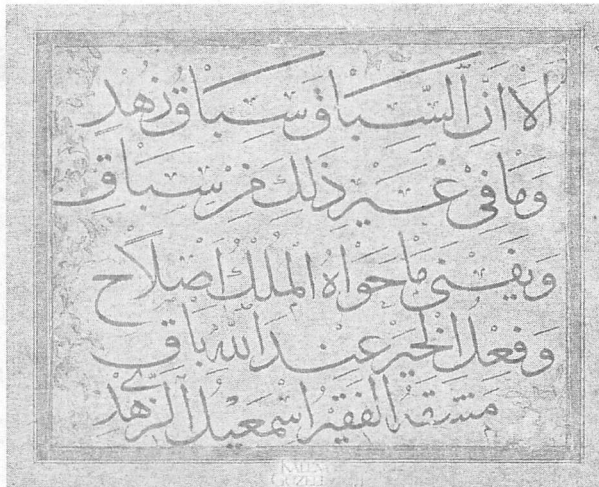 أَلَا أَنَّ السِّبَاقَ سِبَاقُ زُهْدٍ
وَمَا فِي غَيْرِ ذَلِكَ مِنْ سِبَاقِ
وَيَفْنَى مَا حَوَاهُ الْمُلْكُ اصْلَاحٌ
وَفِعْلُ الْخَيْرِ عِنْدَ اللهِ بَاقٍ
مشقه الفقير اسمعيل الزهدي
KALEM
GÜZELİ